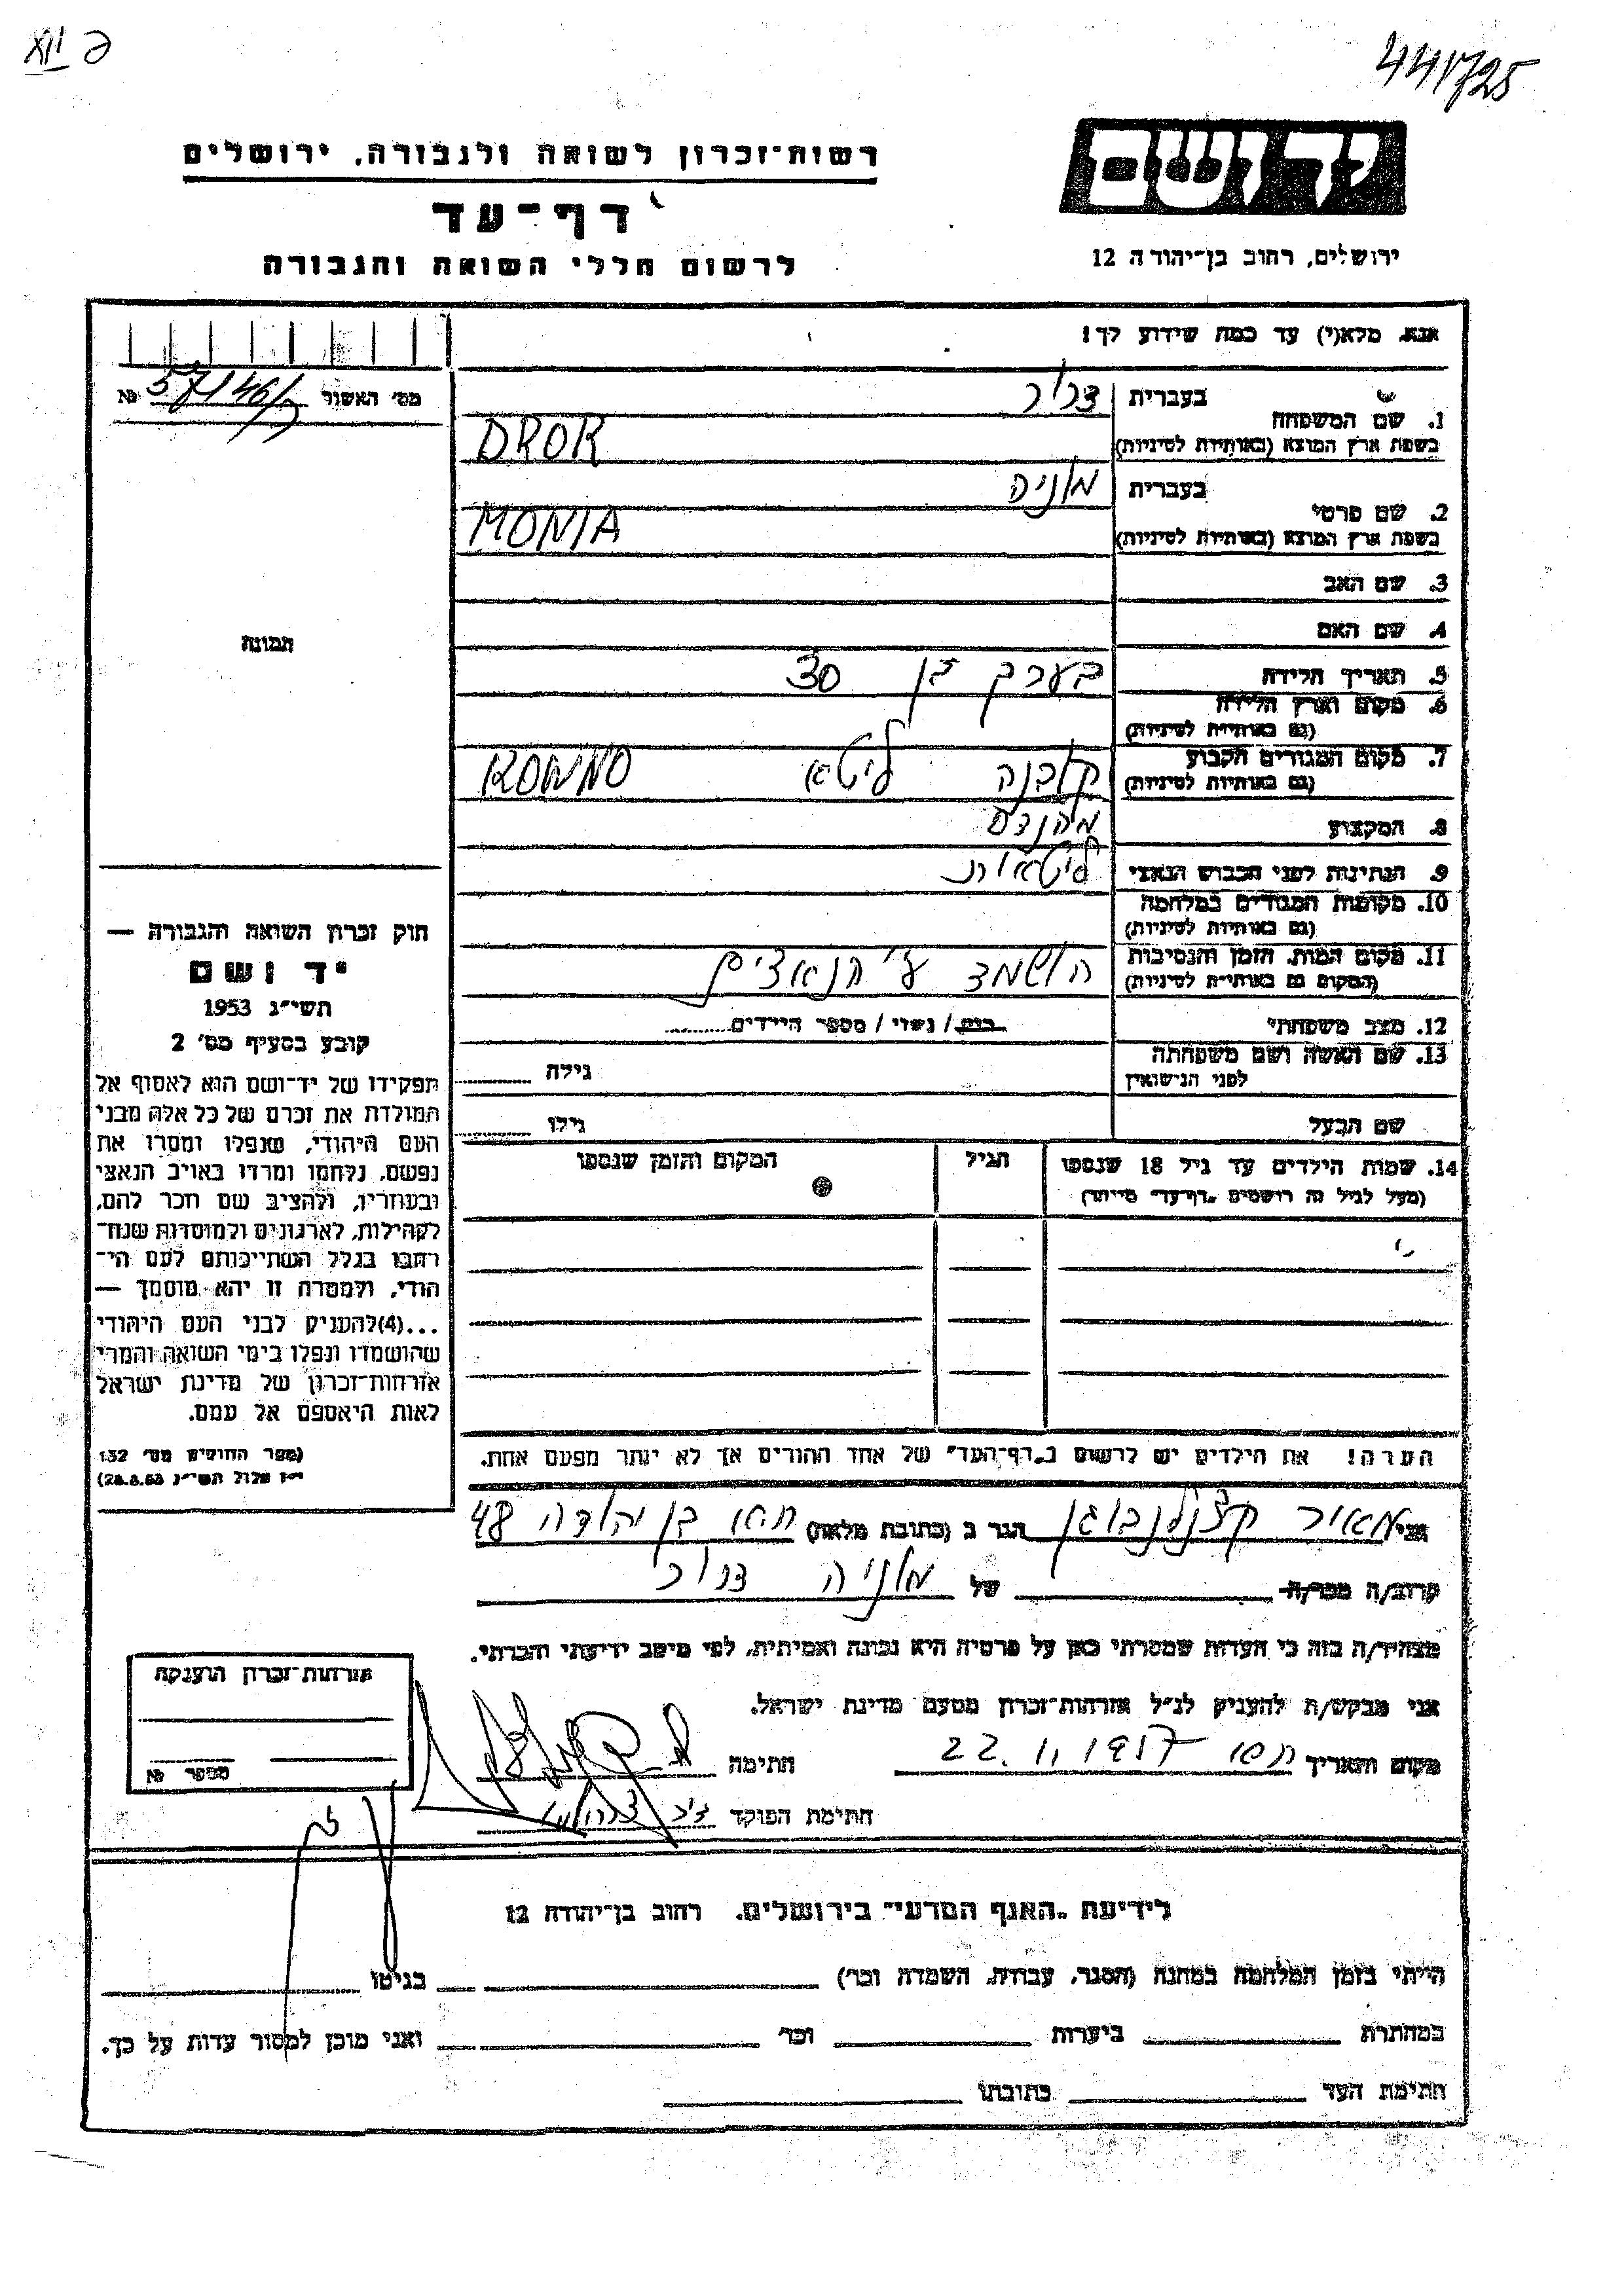 XII ק
441725
רשות־זכרון לשואה ולגבורה, ירושלים
דף־עד
לרשום חללי השואה והגבורה
יד ושם
ירושלים, רחוב בן־יהודה 12
אנא, מלא(י) עד כמה שידוע לך!
מס׳ האשור №
בעברית דרור
1. שם המשפחה
בשפת ארץ המוצא (באותיות לטיניות) DROR
בעברית מוניה
2. שם פרטי
בשפת ארץ המוצא (באותיות לטיניות) MONIA
3. שם האב
4. שם האם
תמונה
5. תאריך הלידה בערך בן 30
6. מקום וארץ הלידה
(גם באותיות לטיניות)
7. מקום המגורים הקבוע קובנה ליטא
(גם באותיות לטיניות)
8. המקצוע מהנדס
9. הנתינות לפני הכבוש הנאצי ליטאית
10. מקומות המגורים במלחמה
(גם באותיות לטיניות)
11. מקום המות, הזמן והנסיבות הושמד ע״י הנאצים
(המקום גם באותיות לטיניות)
12. מצב משפחתי רווק / נשוי / מספר הילדים
13. שם האשה ושם משפחתה גילה
לפני הנישואין
שם הבעל גילו
14. שמות הילדים עד גיל 18 שנספו הגיל המקום והזמן שנספו
(מעל לגיל זה רושמים „דף־עד״ מיוחד)
חוק זכרון השואה והגבורה —
יד ושם
תשי״ג 1953
קובע בסעיף מס׳ 2
תפקידו של יד־ושם הוא לאסוף אל
המולדת את זכרם של כל אלה מבני
העם היהודי, שנפלו ומסרו את
נפשם, נלחמו ומרדו באויב הנאצי
ובעוזריו, ולהציב שם וזכר להם,
לקהילות, לארגונים ולמוסדות שנח־
רבו בגלל השתייכותם לעם הי־
הודי, ולמטרה זו יהא מוסמך —
...(4)להעניק לבני העם היהודי
שהושמדו ונפלו בימי השואה והמרי
אזרחות־זכרון של מדינת ישראל
לאות היאספם אל עמם.
(ספר החוקים מס׳ 132
י״ז אלול תשי״ג 28.8.53)
הערה! את הילדים יש לרשום ב„דף־העד״ של אחד ההורים אך לא יותר מפעם אחת.
אני מאיר קצנלנבוגן הגר ב (כתובת מלאה) בן יהודה 48
קרוב/ה מכר/ה של מוניה דרור
מצהיר/ה בזה כי העדות שמסרתי כאן על פרטיה היא נכונה ואמיתית, לפי מיטב ידיעתי והכרתי.
אני מבקש/ת להעניק לנ״ל אזרחות־זכרון מטעם מדינת ישראל.
מקום ותאריך 22.11.1957 חתימה
חתימת הפוקד
אזרחות־זכרון הוענקה
מספר №
לידיעת „האגף המדעי״ בירושלים, רחוב בן־יהודה 12
הייתי בזמן המלחמה במחנה (הסגר, עבודה, השמדה וכו׳) בגיטו
במחתרת ביערות וכו׳ ואני מוכן למסור עדות על כך.
חתימת העד כתובתו